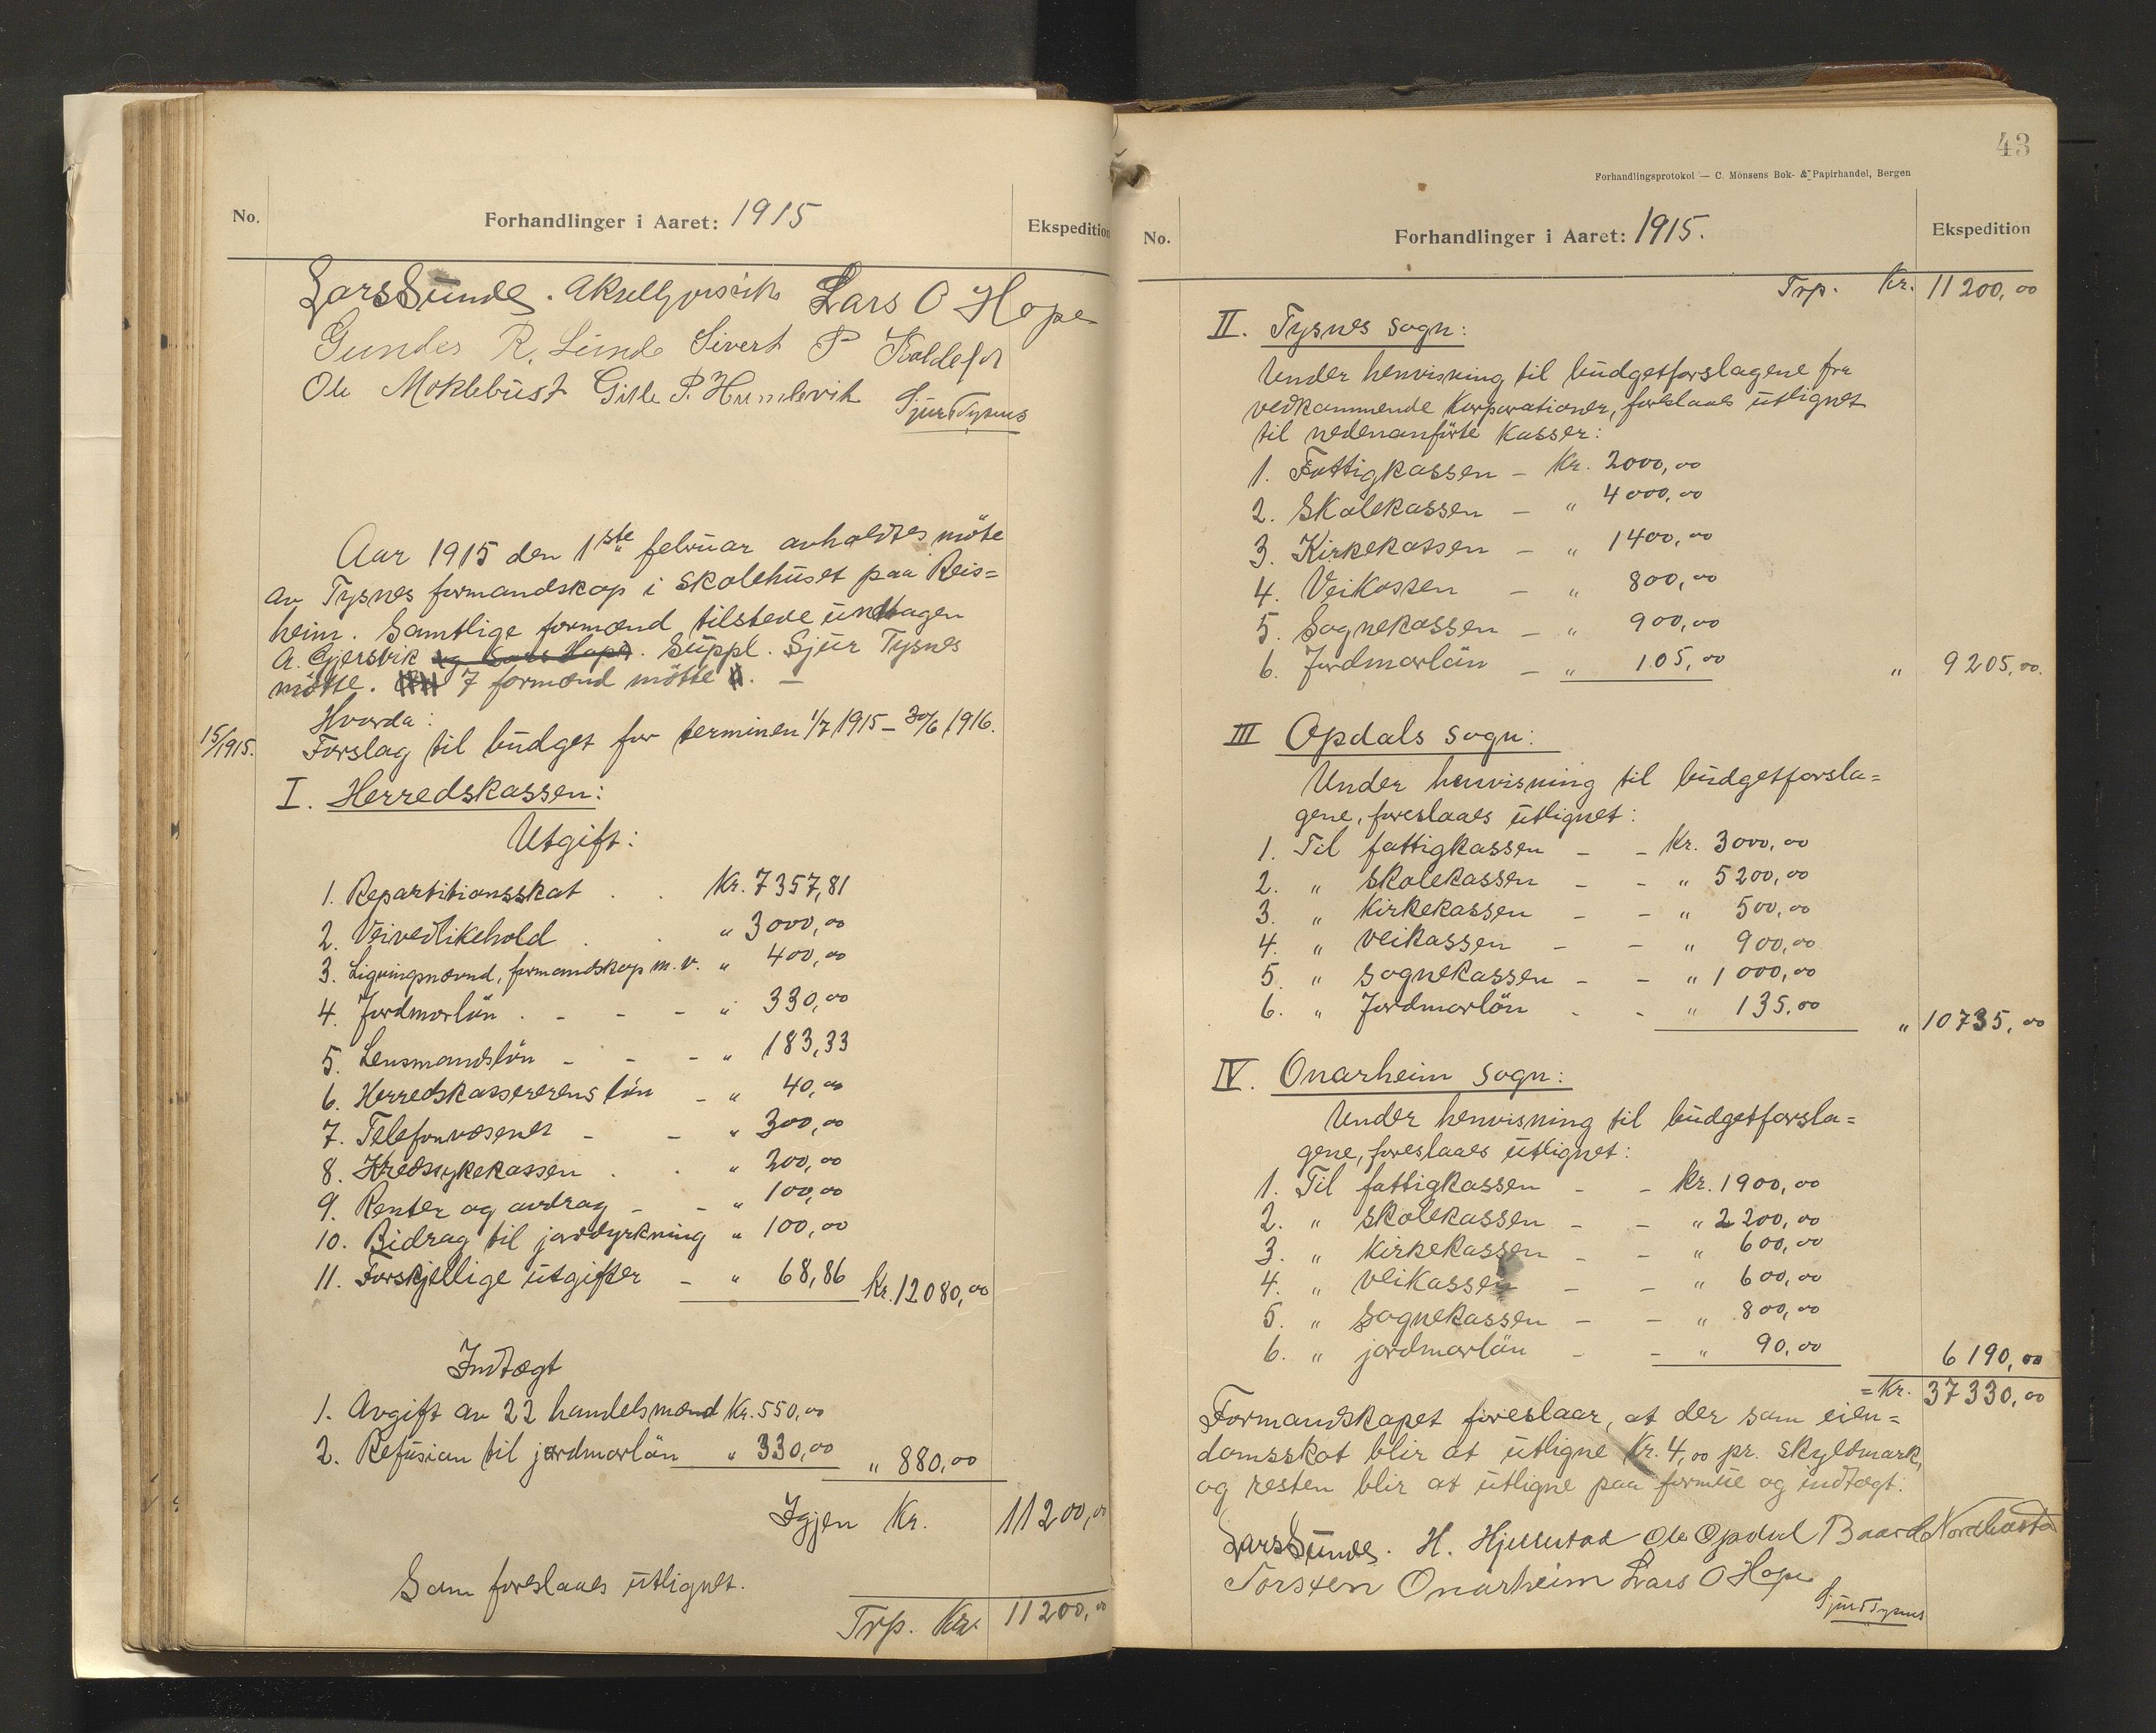 No.
Forhandlinger i Aaret: 1915
Ekspedition
Lars Sunde. Lars O Hope
Gunder R. Lunde Sivert P
Ole Moklebust Gitle P. Humlevik Sjur Tysnes
Aar 1915 den 1ste februar avholdtes möte
av Tysnes formandskap i skolehuset paa Reis=
heim. Samtlige formænd tilstede undtagen
A. Gjersvik og Lars Hope. Suppl. Sjur Tysnes
mötte. 7 formænd mötte. —
Hvorda:
15/1915. Forslag til budget for terminen 1/7 1915 – 30/6 1916.
I. Herredskassen:
Utgift:
1. Repartitionsskat . . Kr. 7357,81
2. Veivedlikehold . . " 3000,00
3. Ligningsnævnd, formandskap m.v. " 400,00
4. Jordmorlön . - - - " 330,00
5. Lensmandslön - - - " 183,33
6. Herredskassererens lön - " 40,00
7. Telefonvæsenet - - " 300,00
8. Kredssykekassen . . " 200,00
9. Renter og avdrag - - " 100,00
10. Bidrag til jorddyrkning " 100,00
11. Forskjellige utgifter - " 68,86 Kr. 12080,00
Indtægt
1. Avgift av 22 handelsmænd Kr. 550,00
2. Refusion til jordmorlön " 330,00 " 880,00
Igjen Kr. 11200,00
Som foreslaaes utlignet.
Trp. Kr. 11200,00
43
Forhandlingsprotokol — C. Mönsens Bok- & Papirhandel, Bergen
No.
Forhandlinger i Aaret: 1915.
Ekspedition
Trp. Kr. 11200,00
II. Tysnes sogn:
Under henvisning til budgetforslagene fra
vedkommende Korporationer, foreslaaes utlignet
til nedenanförte Kasser:
1. Fattigkassen – Kr. 2000,00
2. Skolekassen – " 4000,00
3. Kirkekassen – " 1400,00
4. Veikassen – " 800,00
5. Sognekassen – " 900,00
6. Jordmorlön – " 105,00 " 9205,00.
III Opdals sogn:
Under henvisning til budgetforsla=
gene, foreslaaes utlignet:
1. Til fattigkassen - - Kr. 3000,00
2. " skolekassen - - " 5200,00
3. " Kirkekassen - - " 500,00
4. " veikassen - - " 900,00
5. " sognekassen - - " 1000,00
6. " Jordmorlön - - " 135,00 " 10735,00
IV. Onarheim sogn:
Under henvisning til budgetforsla=
gene, foreslaaes utlignet:
1. Til fattigkassen - - Kr. 1900,00
2. " skolekassen - - " 2200,00
3. " Kirkekassen - - " 600,00
4. " veikassen - - " 600,00
5. " sognekassen - - " 800,00
6. " jordmorlön - - " 90,00 6190,00
= Kr. 37330,00
Formandskapet foreslaar, at der som eien=
domsskat blir at utligne Kr. 4,00 pr. skyldmark,
og resten blir at utligne paa formue og indtægt.
Lars Sunde. H. Hjellestad Ole Opdal Baard Nordhasta
Torsten Onarheim Lars O Hope
Sjur Tysnes